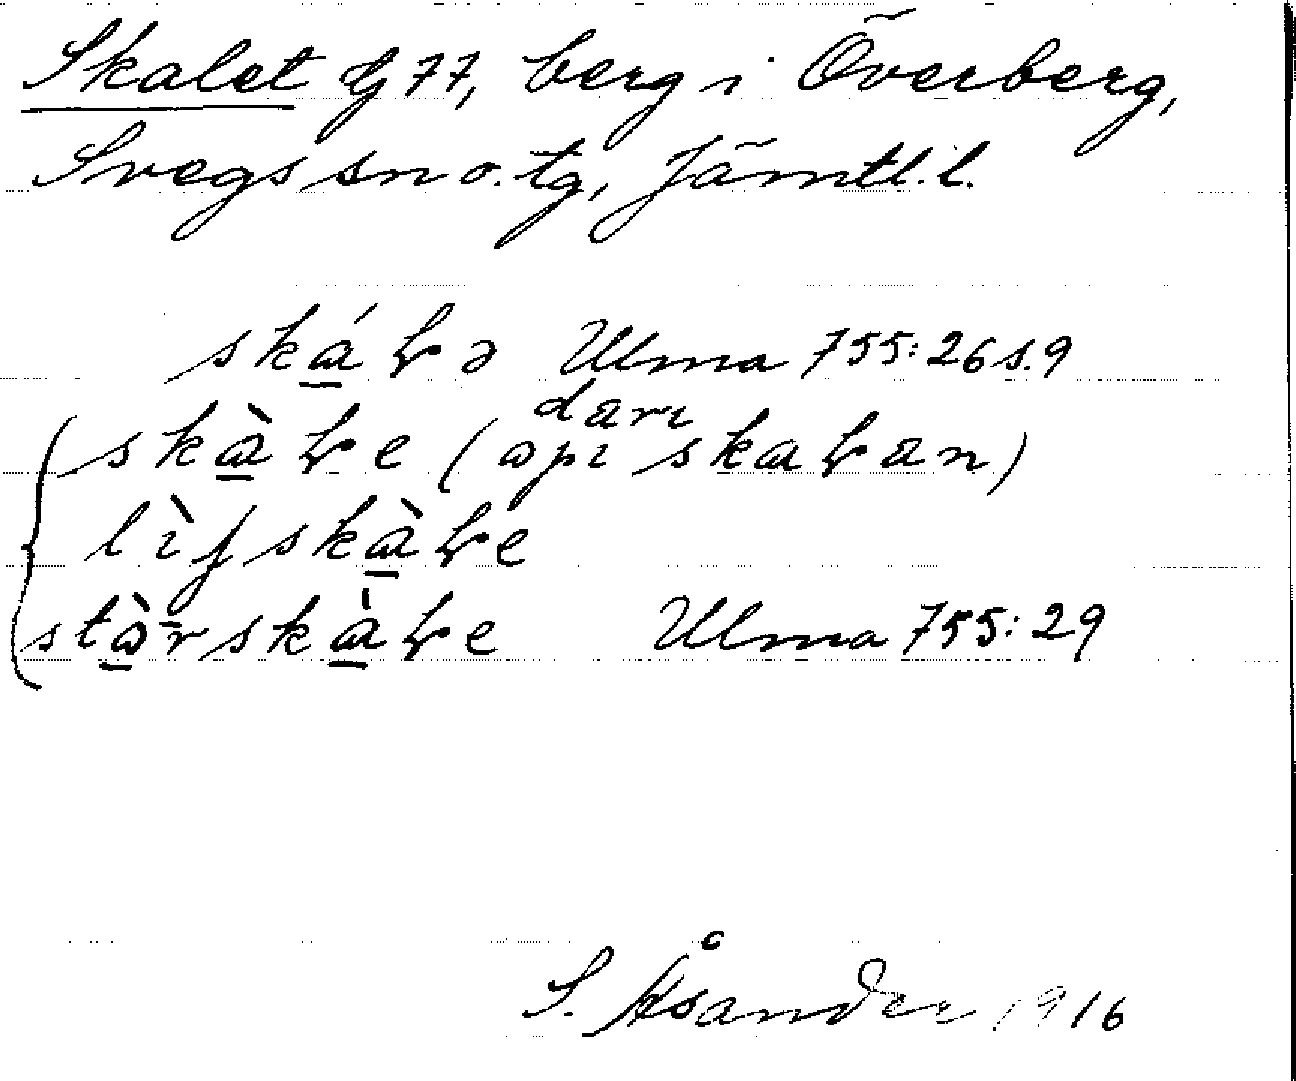 Skalet fj 77, berg i Överberg,
Svegs sn o. tg, Jämtl. l.
skáɽə Ulma 755:26 s.9
skàɽe (api dari skaɽan)
lìfskàɽe
stòrskàɽe Ulma 755:29
S. Åsander 1916